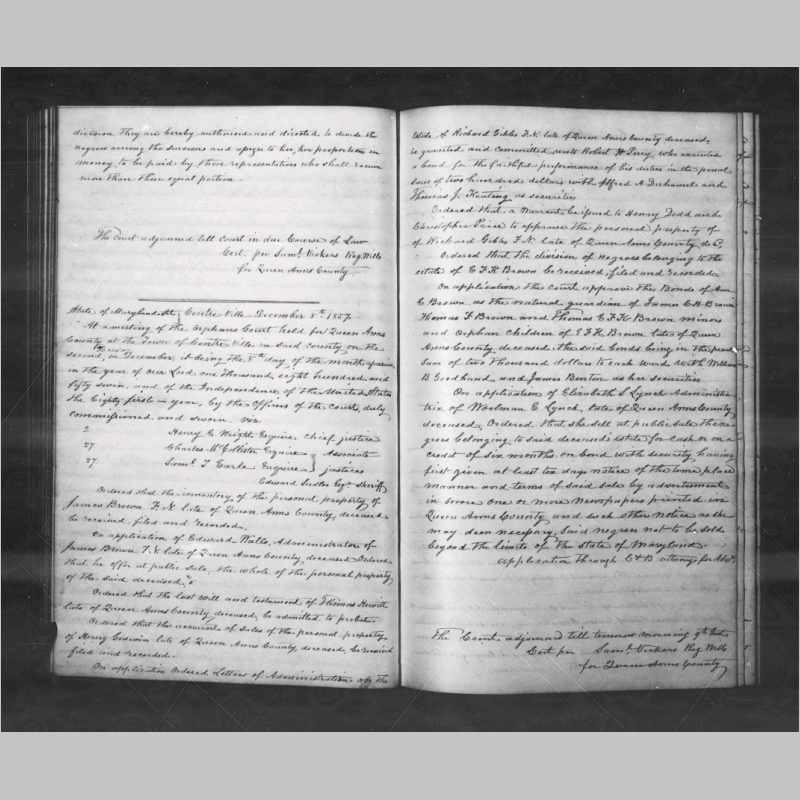 division They are hereby authorised and directed to divide the
negroes among the and assign to her, her proportion in
money, to be paid by those representatives who shall receive
more than their equal portion.
The Court adjourned till court in due Course of Law
Cert. per Saml. Vickers Reg. Wills
for Queen Anns County
State of Maryland Sct. Centre Ville December 8th 1857.
At a meeting of the Orphans Court held for Queen Anns
County at the Town of Centre Ville in said county, on the
second in December, it being the 8th day of the month, aforesaid
in the year of our Lord one thousand eight hundred and
fifty seven, and of the Independence of the United States
the Eighty first year, by the officers of the court, duly
commissioned and sworn. viz
2 Henry C. Wright Esquire Chief justice
27 Charles McCollister Esquire } Associate
27 Saml. T. Earle Esquire } justices
Edward Sudler Esqr. Sheriff
Ordered that the inventory of the personal property of
James Brown F. N. late of Queen Anns County, deceased
be received filed and recorded.
On application of Edward Watts, Administrator of
James Brown F. N. late of Queen Anns County, deceased Ordered
that he offer at public Sale, the whole of the personal property
of the said deceased,
Ordered that the last will and testament of Thomas Hewitt
late of Queen Anns County deceased, be admitted to probate.
Ordered that the accounts of Sales of the personal property
of Henry Godwin late of Queen Anns County, deceased, be received
filed and recorded.
On application Ordered Letters of Administration of the
Estate of Richard Gibbs F. N. late of Queen Anns County deceased,
is granted and committed unto Robert H. who executed
a bond for the faithful performance of his duties in the penal
sum of two hundred dollars with Alfred A. and
Thomas J. Keating as securities
Ordered that a Warrant be issued to Henry Dodd and
Christopher Price to appraise the personal property of
of Richard Gibbs F. N. late of Queen Anns County, decd.
Ordered that the division of negroes belonging to the
estate of E F K Brown be received, filed and recorded.
On application the court approve the Bonds of Ann
E Brown as the natural guardian of James E K Brown
Thomas F Brown and Thomas E F K Brown minors
and Orphan Children of E F K Brown late of Queen
Anns County, deceased, the said bonds being in the penal
Sum of two Thousand dollars to each Ward with William
B Goodhand and James Benton as her securities
On application of Elizabeth S Lynch Administra
trix of Woolman E Lynch, late of Queen Anns County
deceased, Ordered that she sell at public sale the ne-
groes belonging to said deceased's estate for cash or on a
credit of six months on bond with security, having
first given at least ten days notice of the time place
manner and terms of said sale by advertisement
in some one or more Newspapers printed in
Queen Anns County and such other notice as she
may deem necessary, Said negroes not to be sold
beyond the limits of the State of Maryland.
application through attornys for
The Court adjourned till tomorrow morning 9th Inst.
Cert per Saml. Vickers Reg Wills
for Queen Anns County